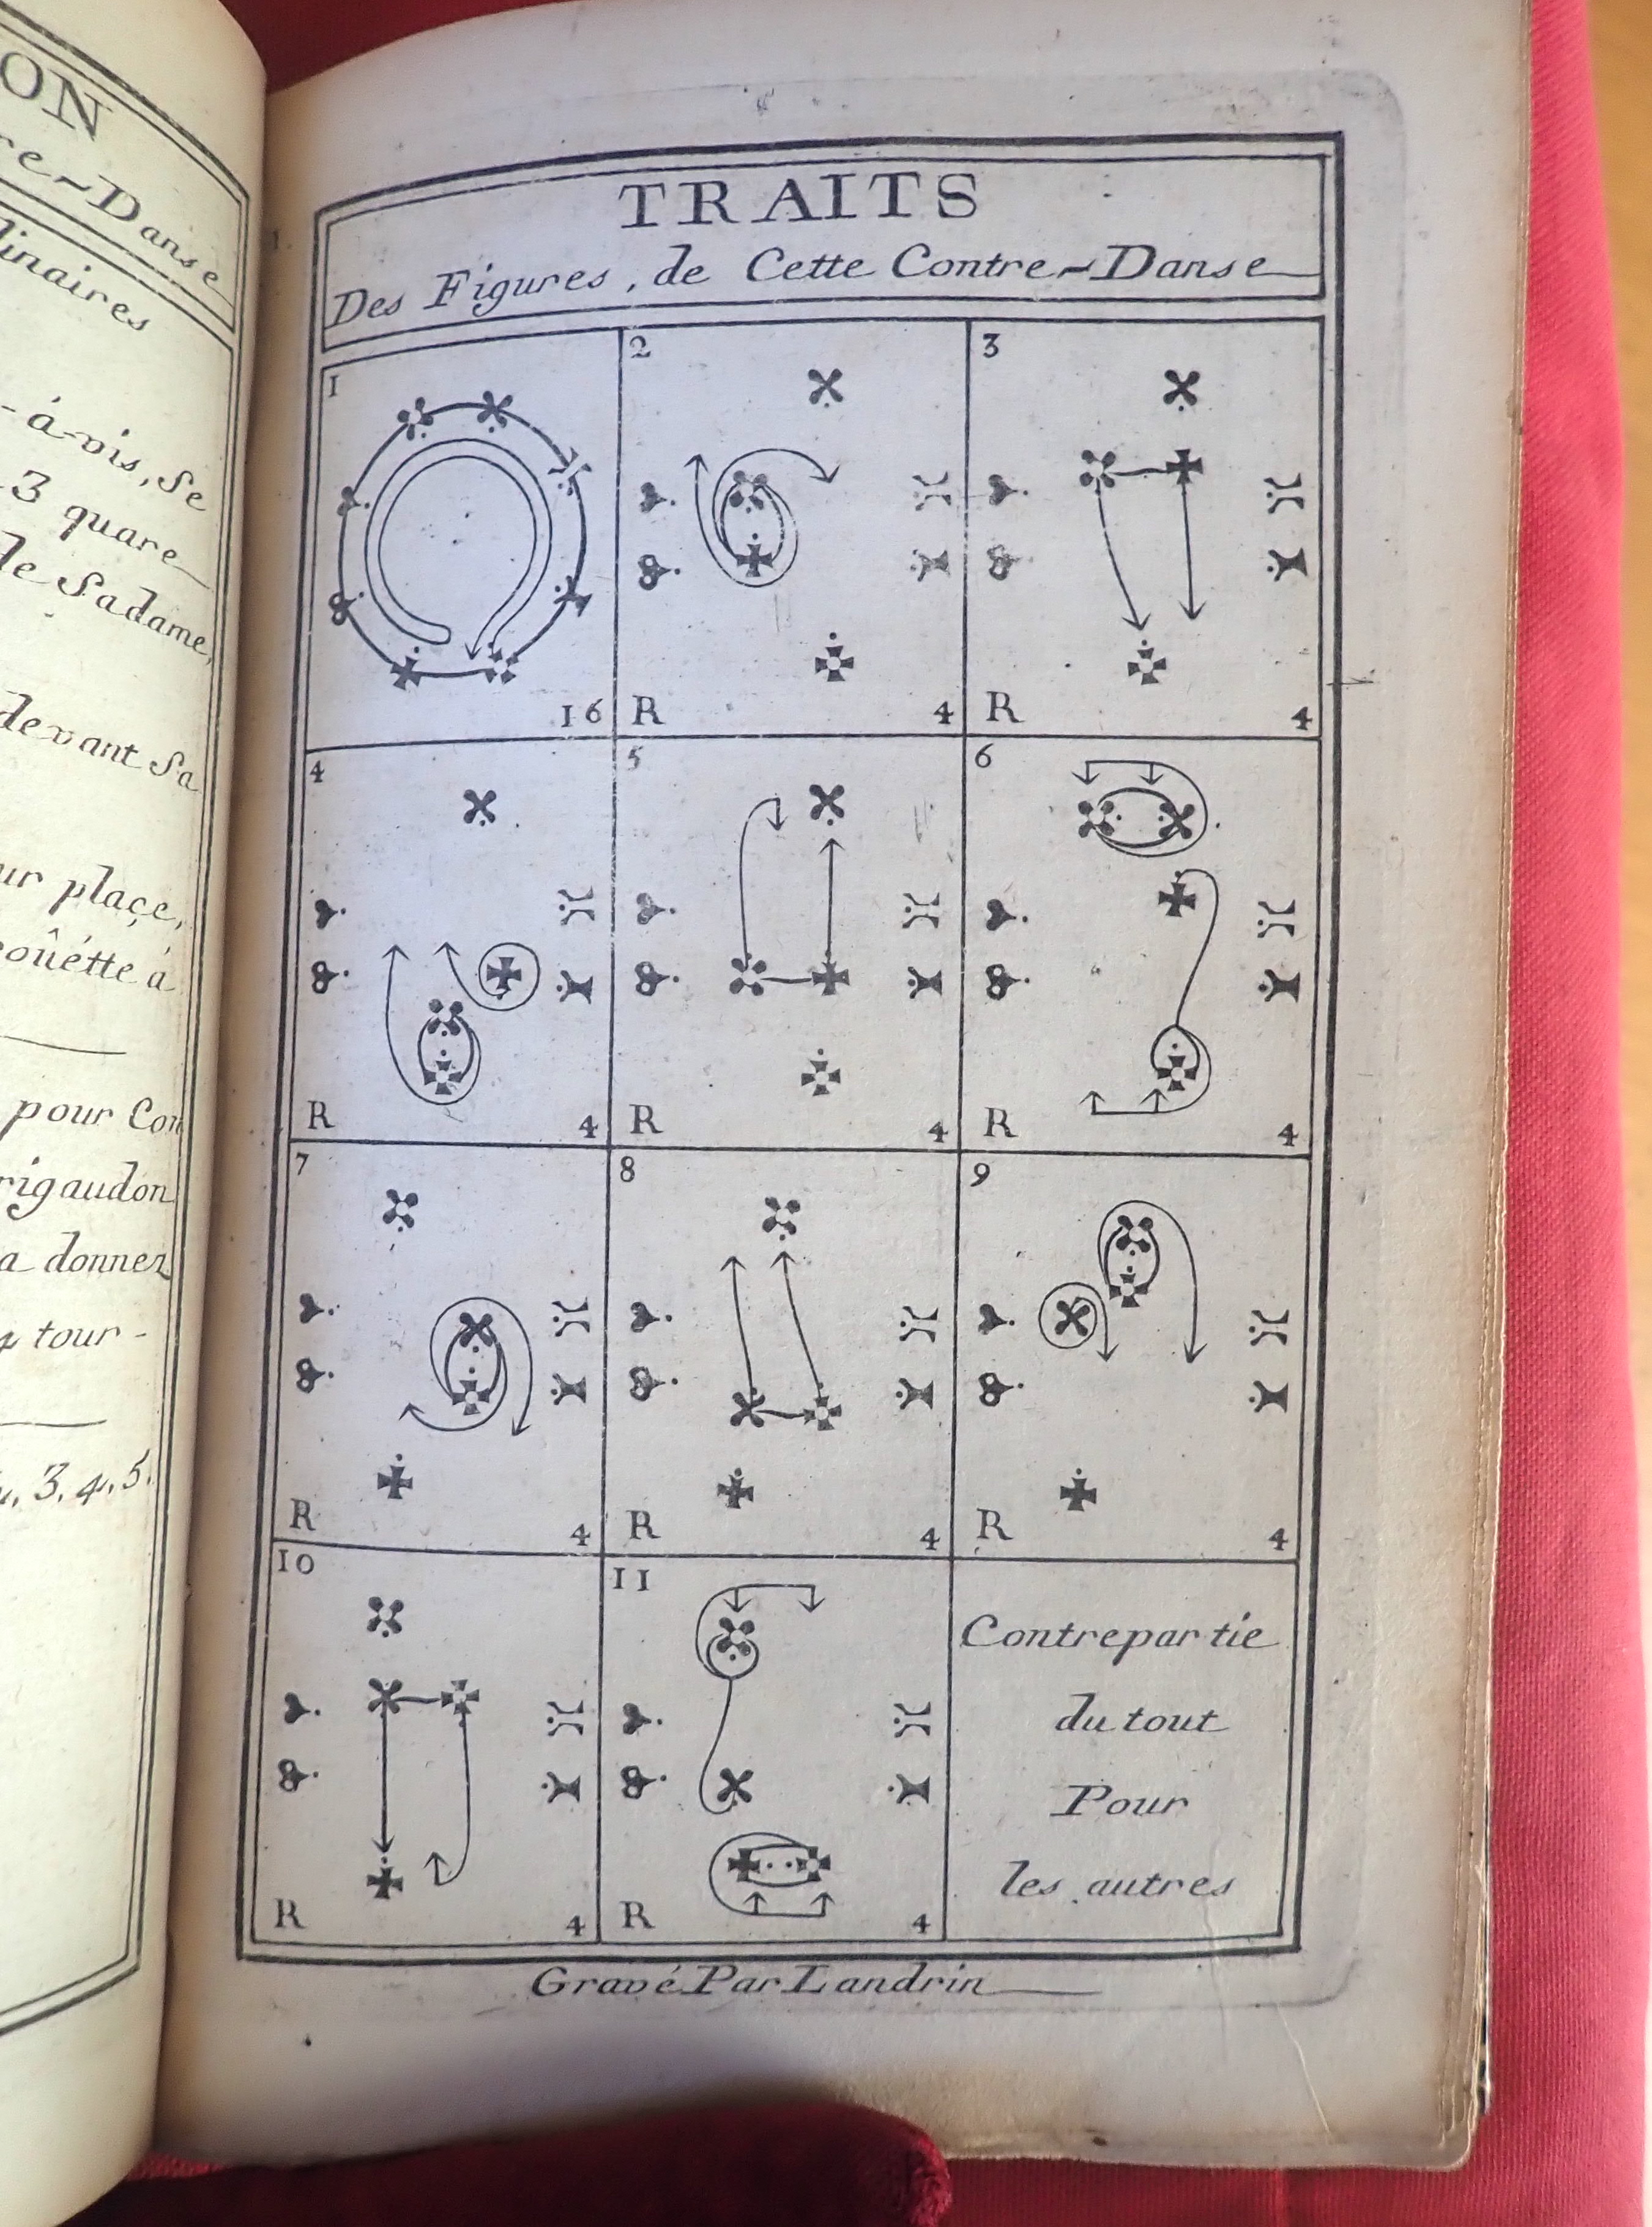 ON
re-Danse
linaires
-à-vis, Se
3 quare
le Sadame,
devant Sa
ur plaçe,
oûétte à
pour Con
rigaudon
a donner
4 tour-
3. 4. 5.
TRAITS
Des Figures, de Cette Contre-Danse
1
16
2
R 4
3
R 4
4
R 4
5
R 4
6
R 4
7
R 4
8
R 4
9
R 4
10
R 4
11
R 4
Contrepartie
du tout
Pour
les autres
Gravé Par Landrin